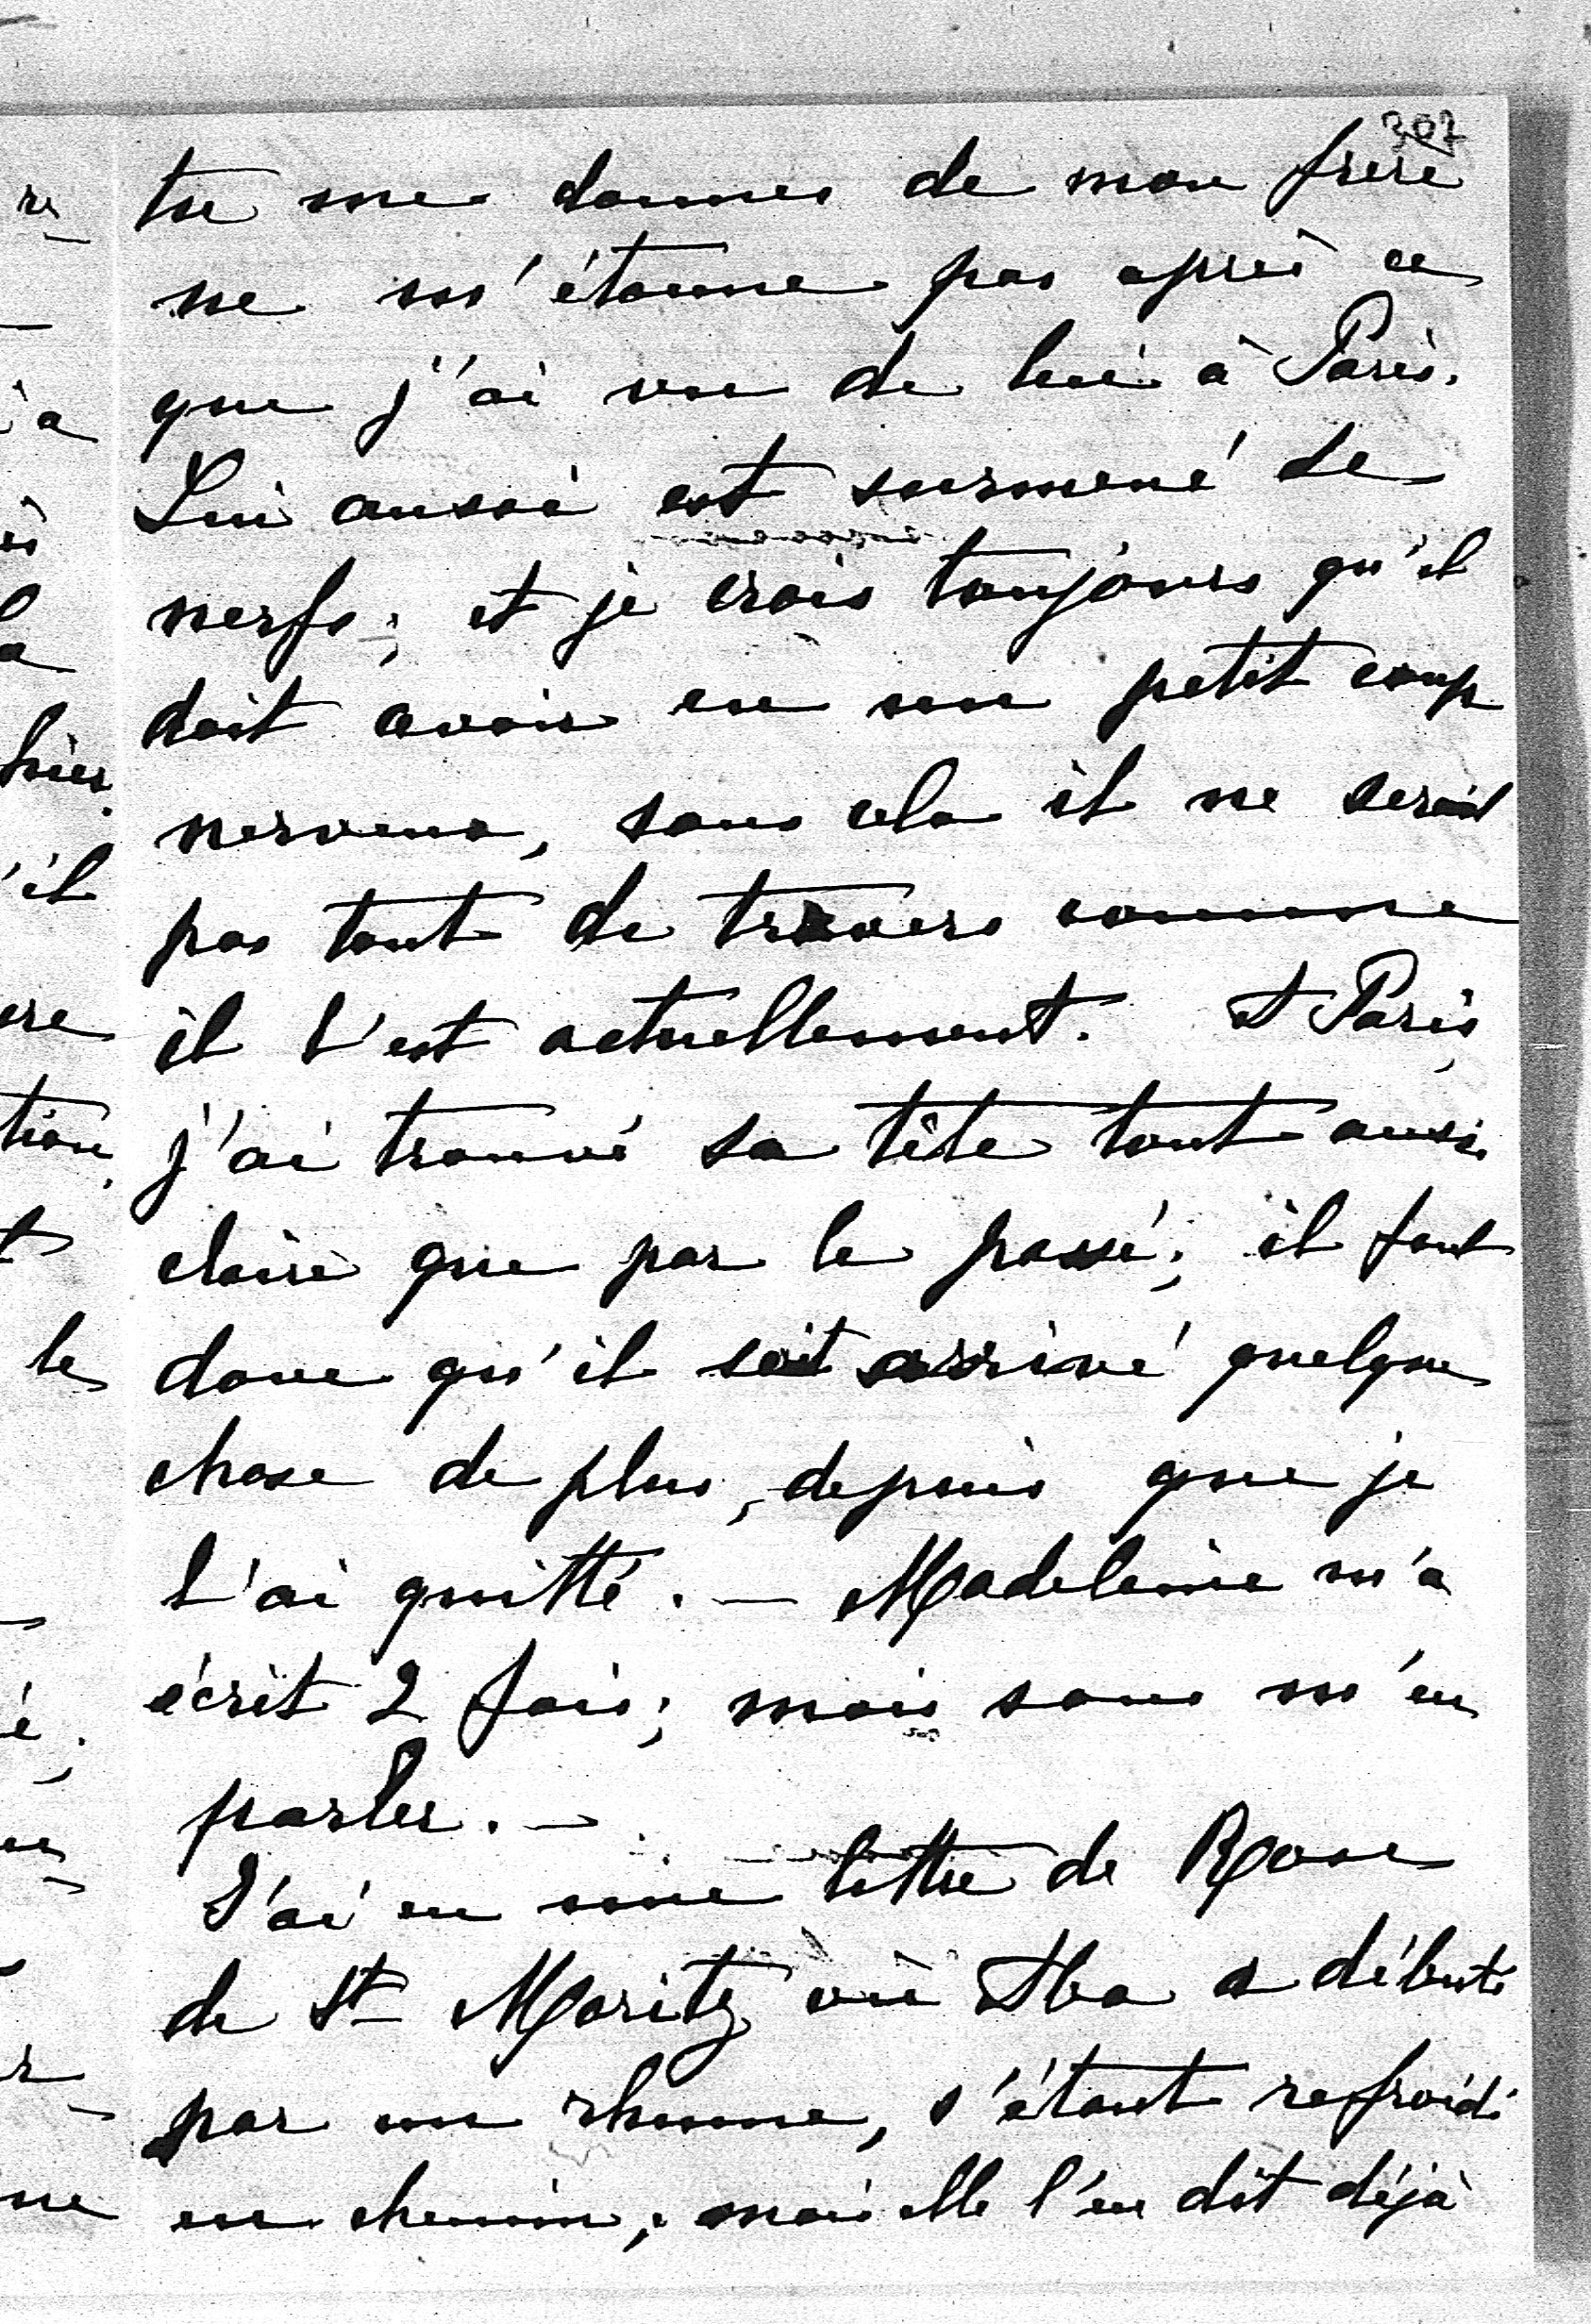 307
tu me donnes de mon frère
ne m'étonne pas après ce
que j'ai vu de lui à Paris.
Lui aussi est surmené de
nerfs; et je crois toujours qu'il
doit avoir eu un petit coup
nerveux, sans cela il ne serait
pas tout de travers comme
il l'est actuellement. A Paris,
j'ai trouvé sa tête tout aussi
claire que par le passé; il faut
donc qu'il soit arrivé quelque
chose de plus, depuis que je
l'ai quitté. — Madeleine m'a
écrit 2 fois; mais sans m'en
parler. —
J'ai eu une lettre de Rose
de St Moritz où a débuté
par un rhume, s'étant refroidi
en chemin; mais elle l'en dit déjà